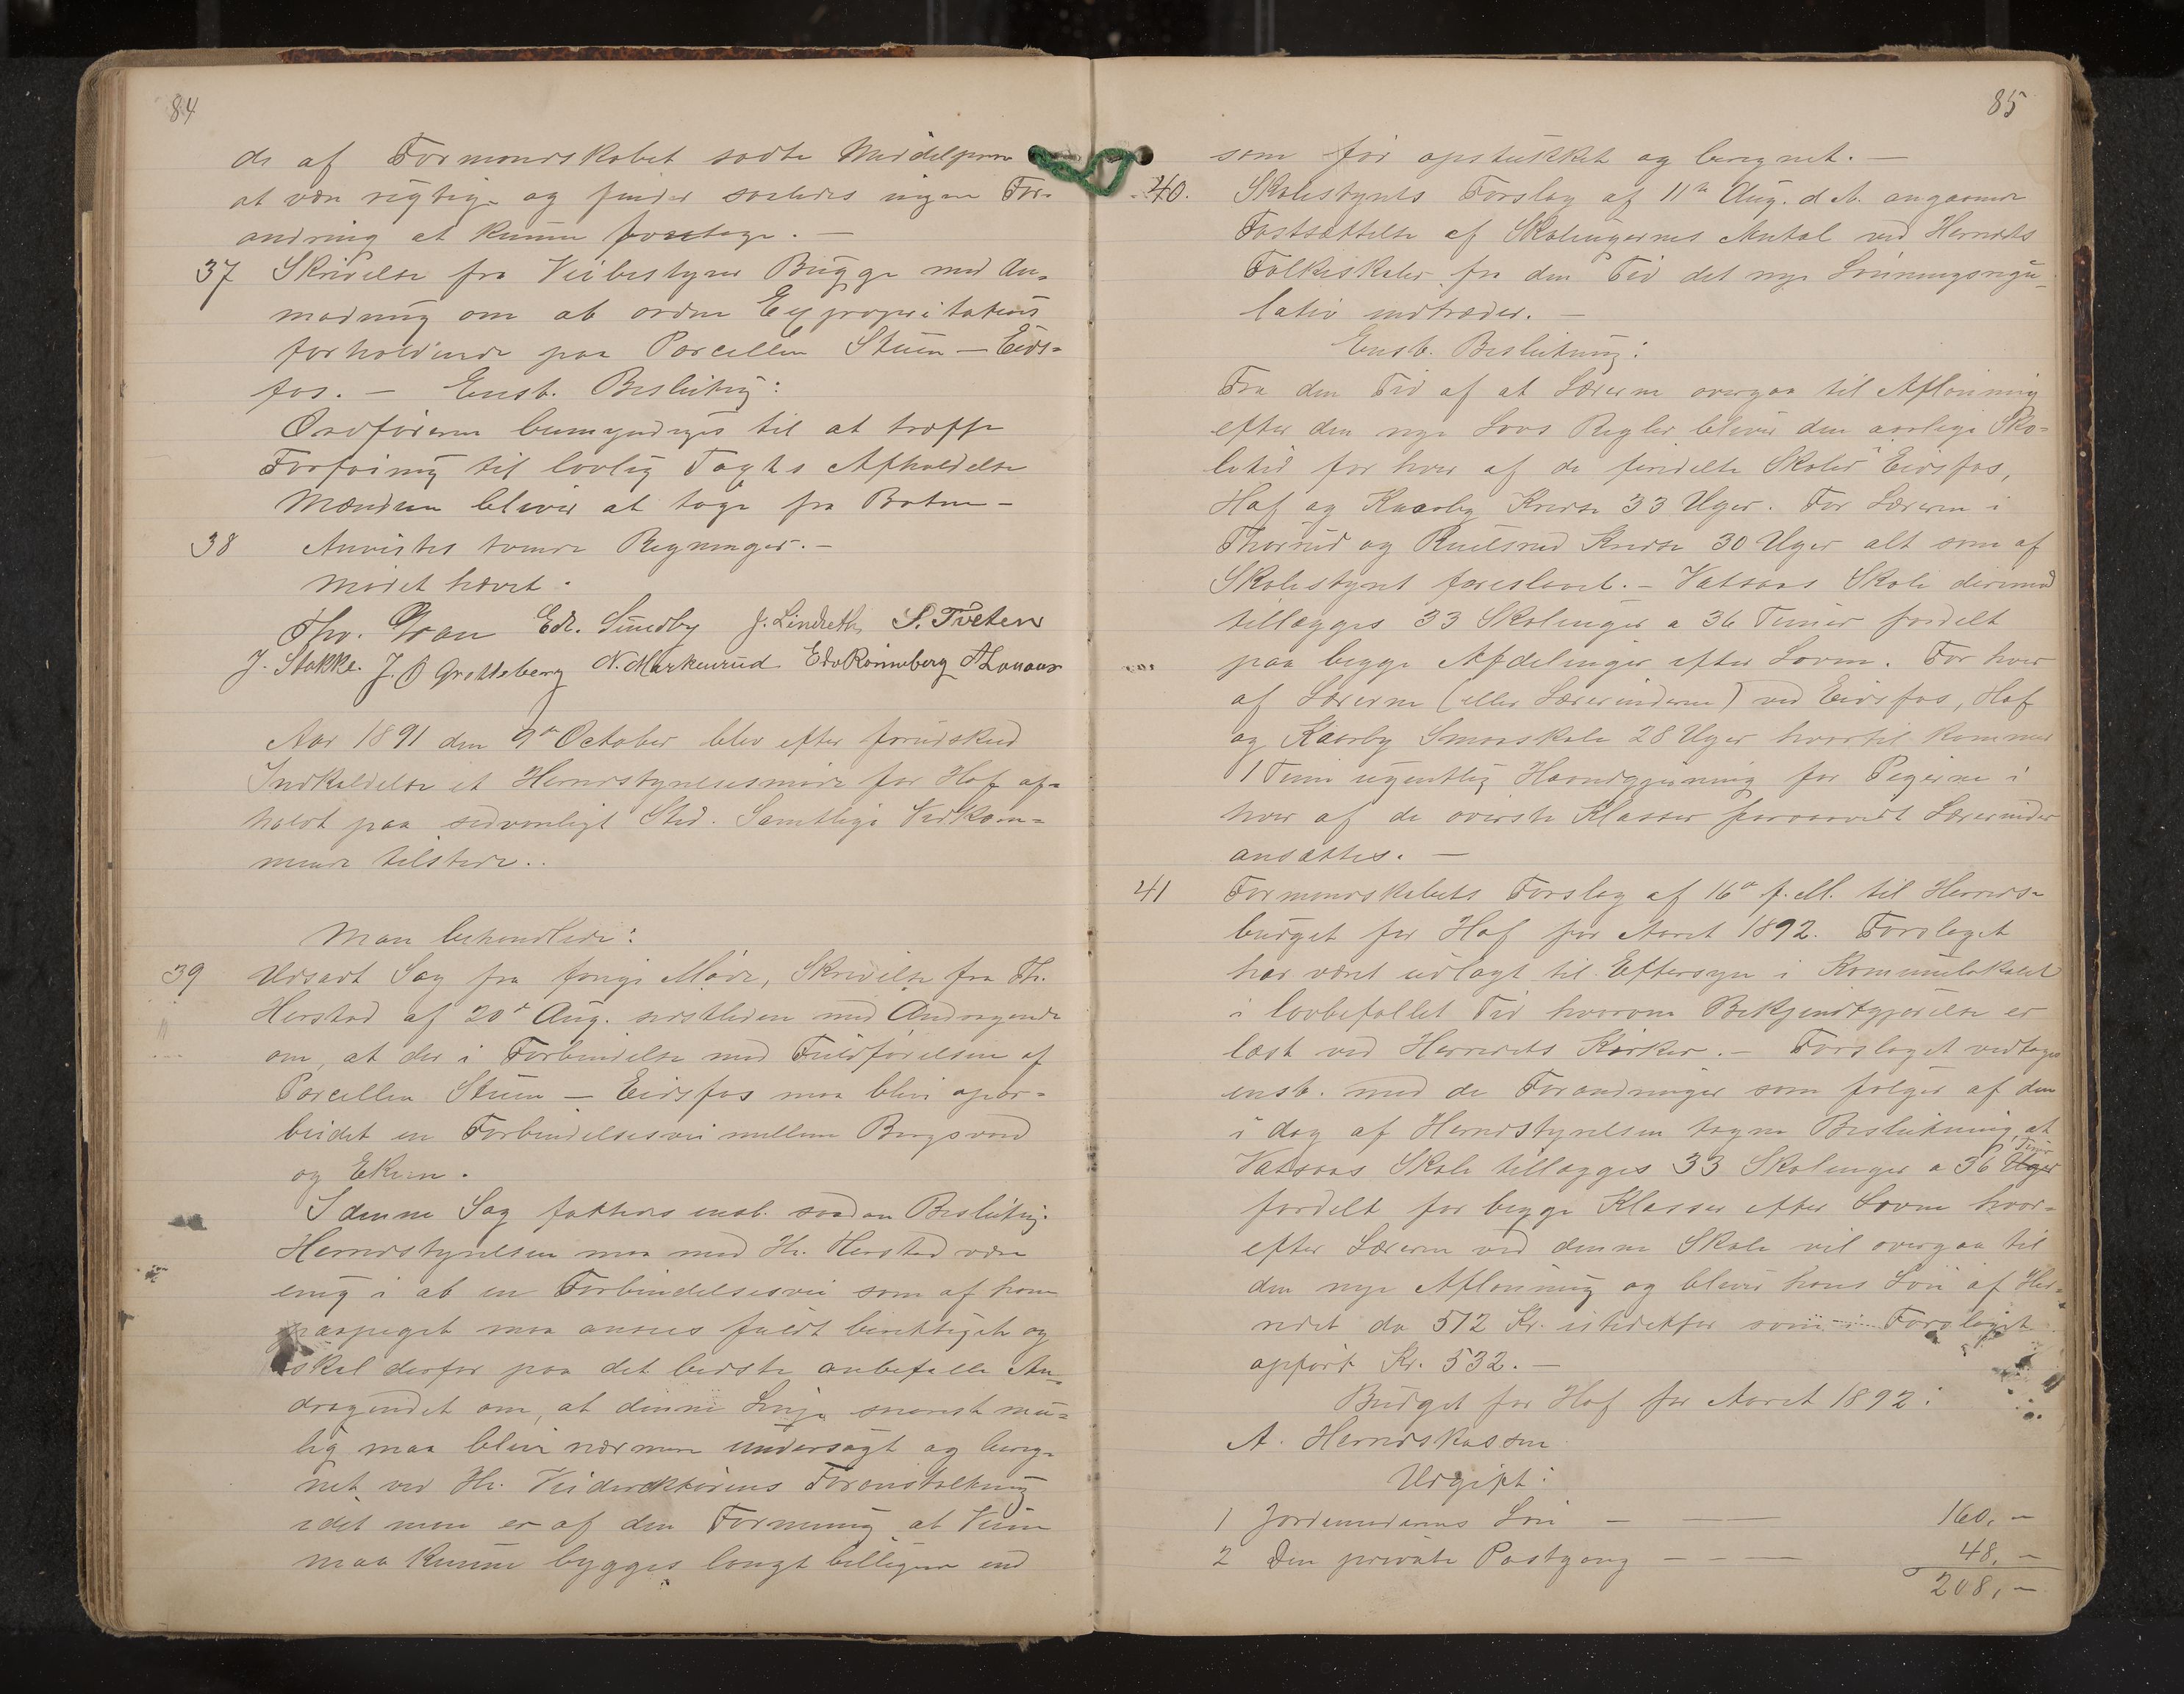 84
de af Formandskabet satte Middelpriser
at være rigtige og finder saaledes ingen For-
andring at kunne foretage. —
37 Skrivelse fra Veibestyrer Bugge med An-
modning om at ordne Expropriations
forholdende paa Parcellen Stuen — Eids-
fos. — Enst. Beslutning:
Ordføreren bemyndiges til at træffe
Forføining til lovlig Taxts Afholdelse
Mændene bliver at tage fra Botne —
38 Anvistes tvende Regninger. —
Mødet hævet.
Thv. Gran Edv. Sundby J. Lindseth S. Tveten
J. Stokke. J. O Grotteberg N. Markerud Edv Rønneberg A Lonaas
Aar 1891 den 9de October blev efter forudskeed
Indkaldelse et Herredsstyrelsesmøde for Hof af-
holdt paa sedvanligt Sted. Samtlige Vedkom-
mende tilstede..
Man behandlede:
39 Udsadt Sag fra forrige Møde, Skrivelse fra Th.
Herstad af 20de Aug. sidstleden med Andragende
om, at der i Forbindelse med Fuldførelsen af
Parcellen Stuen — Eidsfos maa blive opar-
beidet en Forbindelsesvei mellem Bergsvand
og Ekern.
I denne Sag fattedes enst. saadan Beslutng.
Herredsstyrelsen maa med Hr. Herstad være
enig i at en Forbindelsesvei som af ham
paapeget maa ansees fuldt berettiget og
skal derfor paa det bedste anbefalle An-
dragendet om, at denne Linje snarest mu-
lig maa blive nærmere undersøgt og bereg-
net ved Hr. Veidirektørens Foranstaltning
idet man er af den Formening at Veien
maa kunne bygges langt billigere end
85
som før opstukket og beregnet. —
40. Skolestyrets Forslag af 11te Aug. d. A. angaaende
Fastsættelse af Skoleugernes Antal ved Herredets
Folkeskoler fra den Tid det nye Lønningsregu-
lativ indtræder. —
Enst. Beslutning:
Fra den Tid af at Lærerne overgaa til Aflønning
efter den nye Lovs Regler bliver den aarlige Sko-
letid for hver af de fuldelte Skoler Eidsfos,
Hof og Kaarby Kredse 33 Uger. For Læreren i
Thorrud og Ruelsrud Kredse 30 Uger alt som af
Skolestyret foreslaaet. — Vatsaas Skole derimod
tillægges 33 Skoleuger a 36 Timer fordelt
paa begge Afdelinger efter Loven. For hver
af Lærerne (eller Lærerinderne) ved Eidsfos, Hof
og Kaarby Smaaskole 28 Uger hvortil kommer
1 Time ugentlig Haandgjerning for Pigerne i
hver af de øverste Klasser forsaavidt Lærerinder
ansættes. —
41 Formandskabets Forslag af 16de f. M. til Herreds-
budget for Hof for Aaret 1892. Forslaget
har været udlagt til Eftersyn i Kommunelokalet
i lovbefallet Tid hvorom Bekjendtgjørelse er
læst ved Herredets Kirker. — Forslaget vedtages
enst. med de Forandringer som følger af den
i dag af Herredsstyrelsen tagne Beslutning, at
Vatsaas Skole tillægges 33 Skoleuger a 36 Uger Timer
fordelt for begge Klasser efter Loven hvor-
efter Læreren ved denne Skole vil overgaa til
den nye Aflønning og bliver hans Løn af Her-
redet da 512 Kr. istedetfor som i Forslaget
opført Kr. 532. —
Budget for Hof for Aaret 1892:
A. Herredskassen
Udgift:
1 Jordemoderens Løn — — 160, —
2 Den private Postgang — — — 48, —
208, —